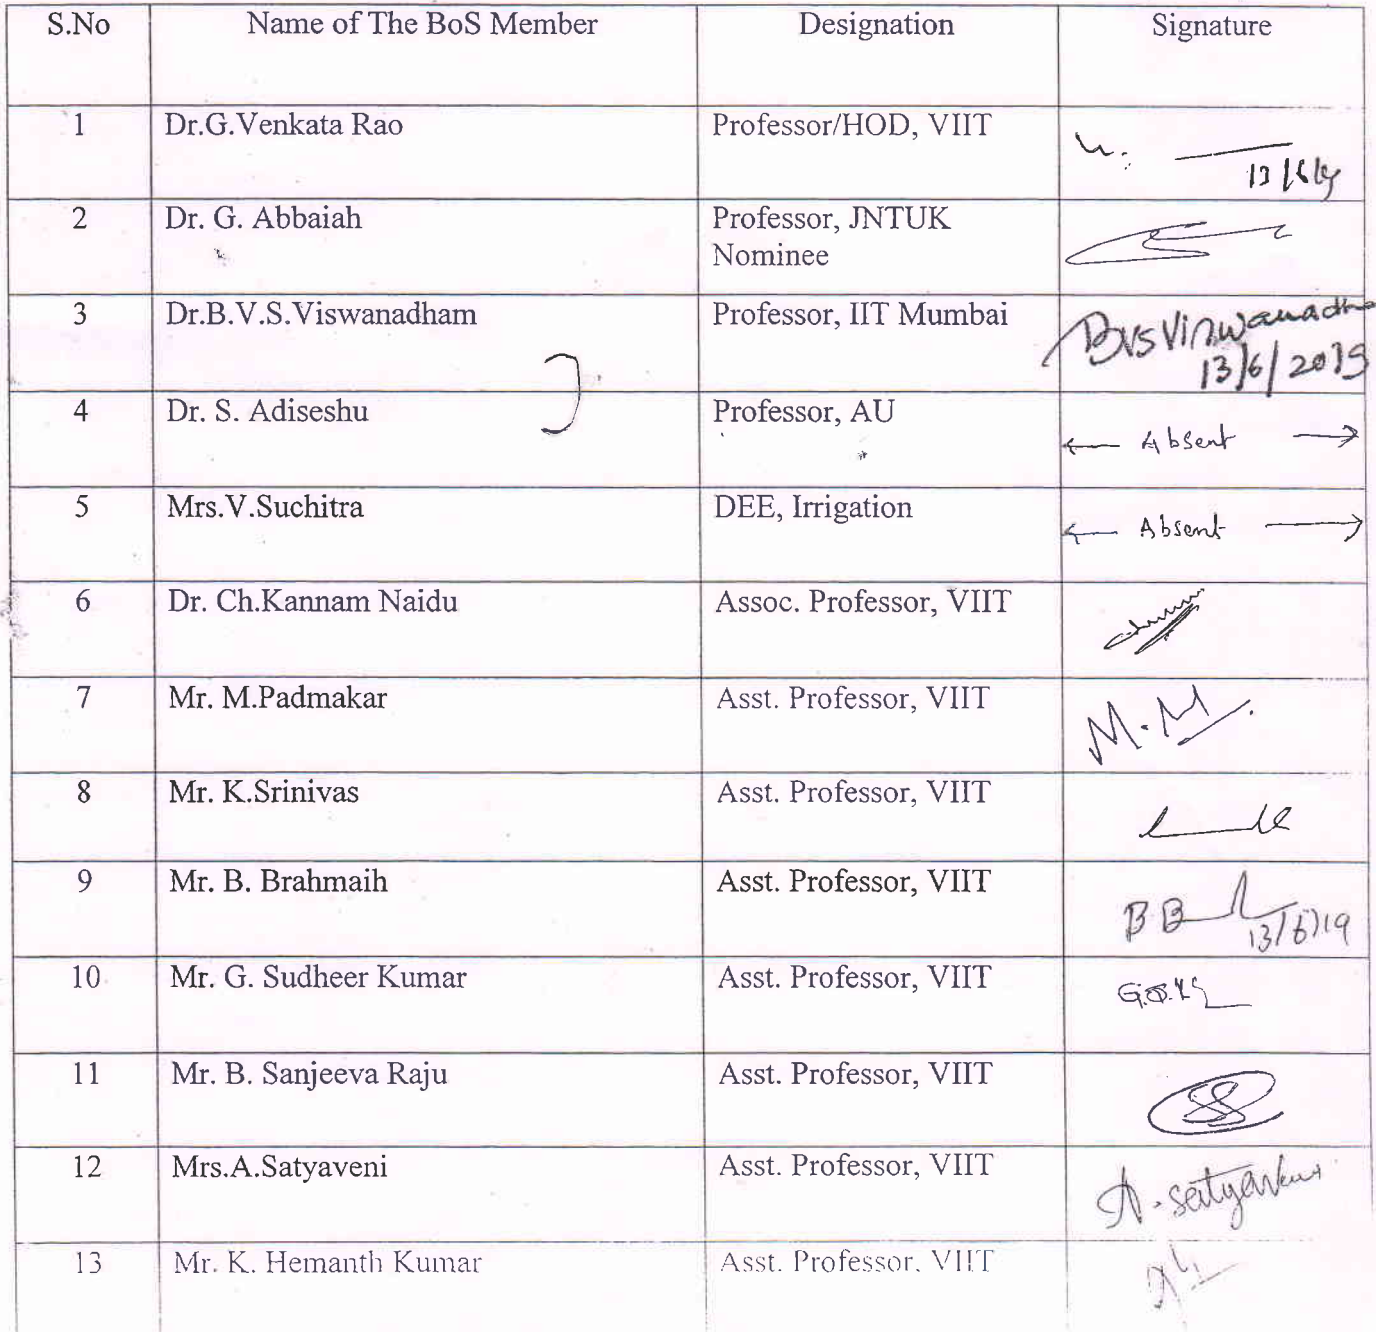 S.No Name of The BoS Member Designation Signature
1 Dr.G.Venkata Rao Professor/HOD, VIIT
2 Dr. G. Abbaiah Professor, JNTUK
Nominee
3 Dr.B.V.S.Viswanadham Professor, IIT Mumbai BVS Viswanadha
13/6/2019
4 Dr. S. Adiseshu Professor, AU Absent
5 Mrs.V.Suchitra DEE, Irrigation Absent
6 Dr. Ch.Kannam Naidu Assoc. Professor, VIIT
7 Mr. M.Padmakar Asst. Professor, VIIT M.M.
8 Mr. K.Srinivas Asst. Professor, VIIT
9 Mr. B. Brahmaih Asst. Professor, VIIT BB
13/6/19
10 Mr. G. Sudheer Kumar Asst. Professor, VIIT
11 Mr. B. Sanjeeva Raju Asst. Professor, VIIT
12 Mrs.A.Satyaveni Asst. Professor, VIIT
13 Mr. K. Hemanth Kumar Asst. Professor, VIIT